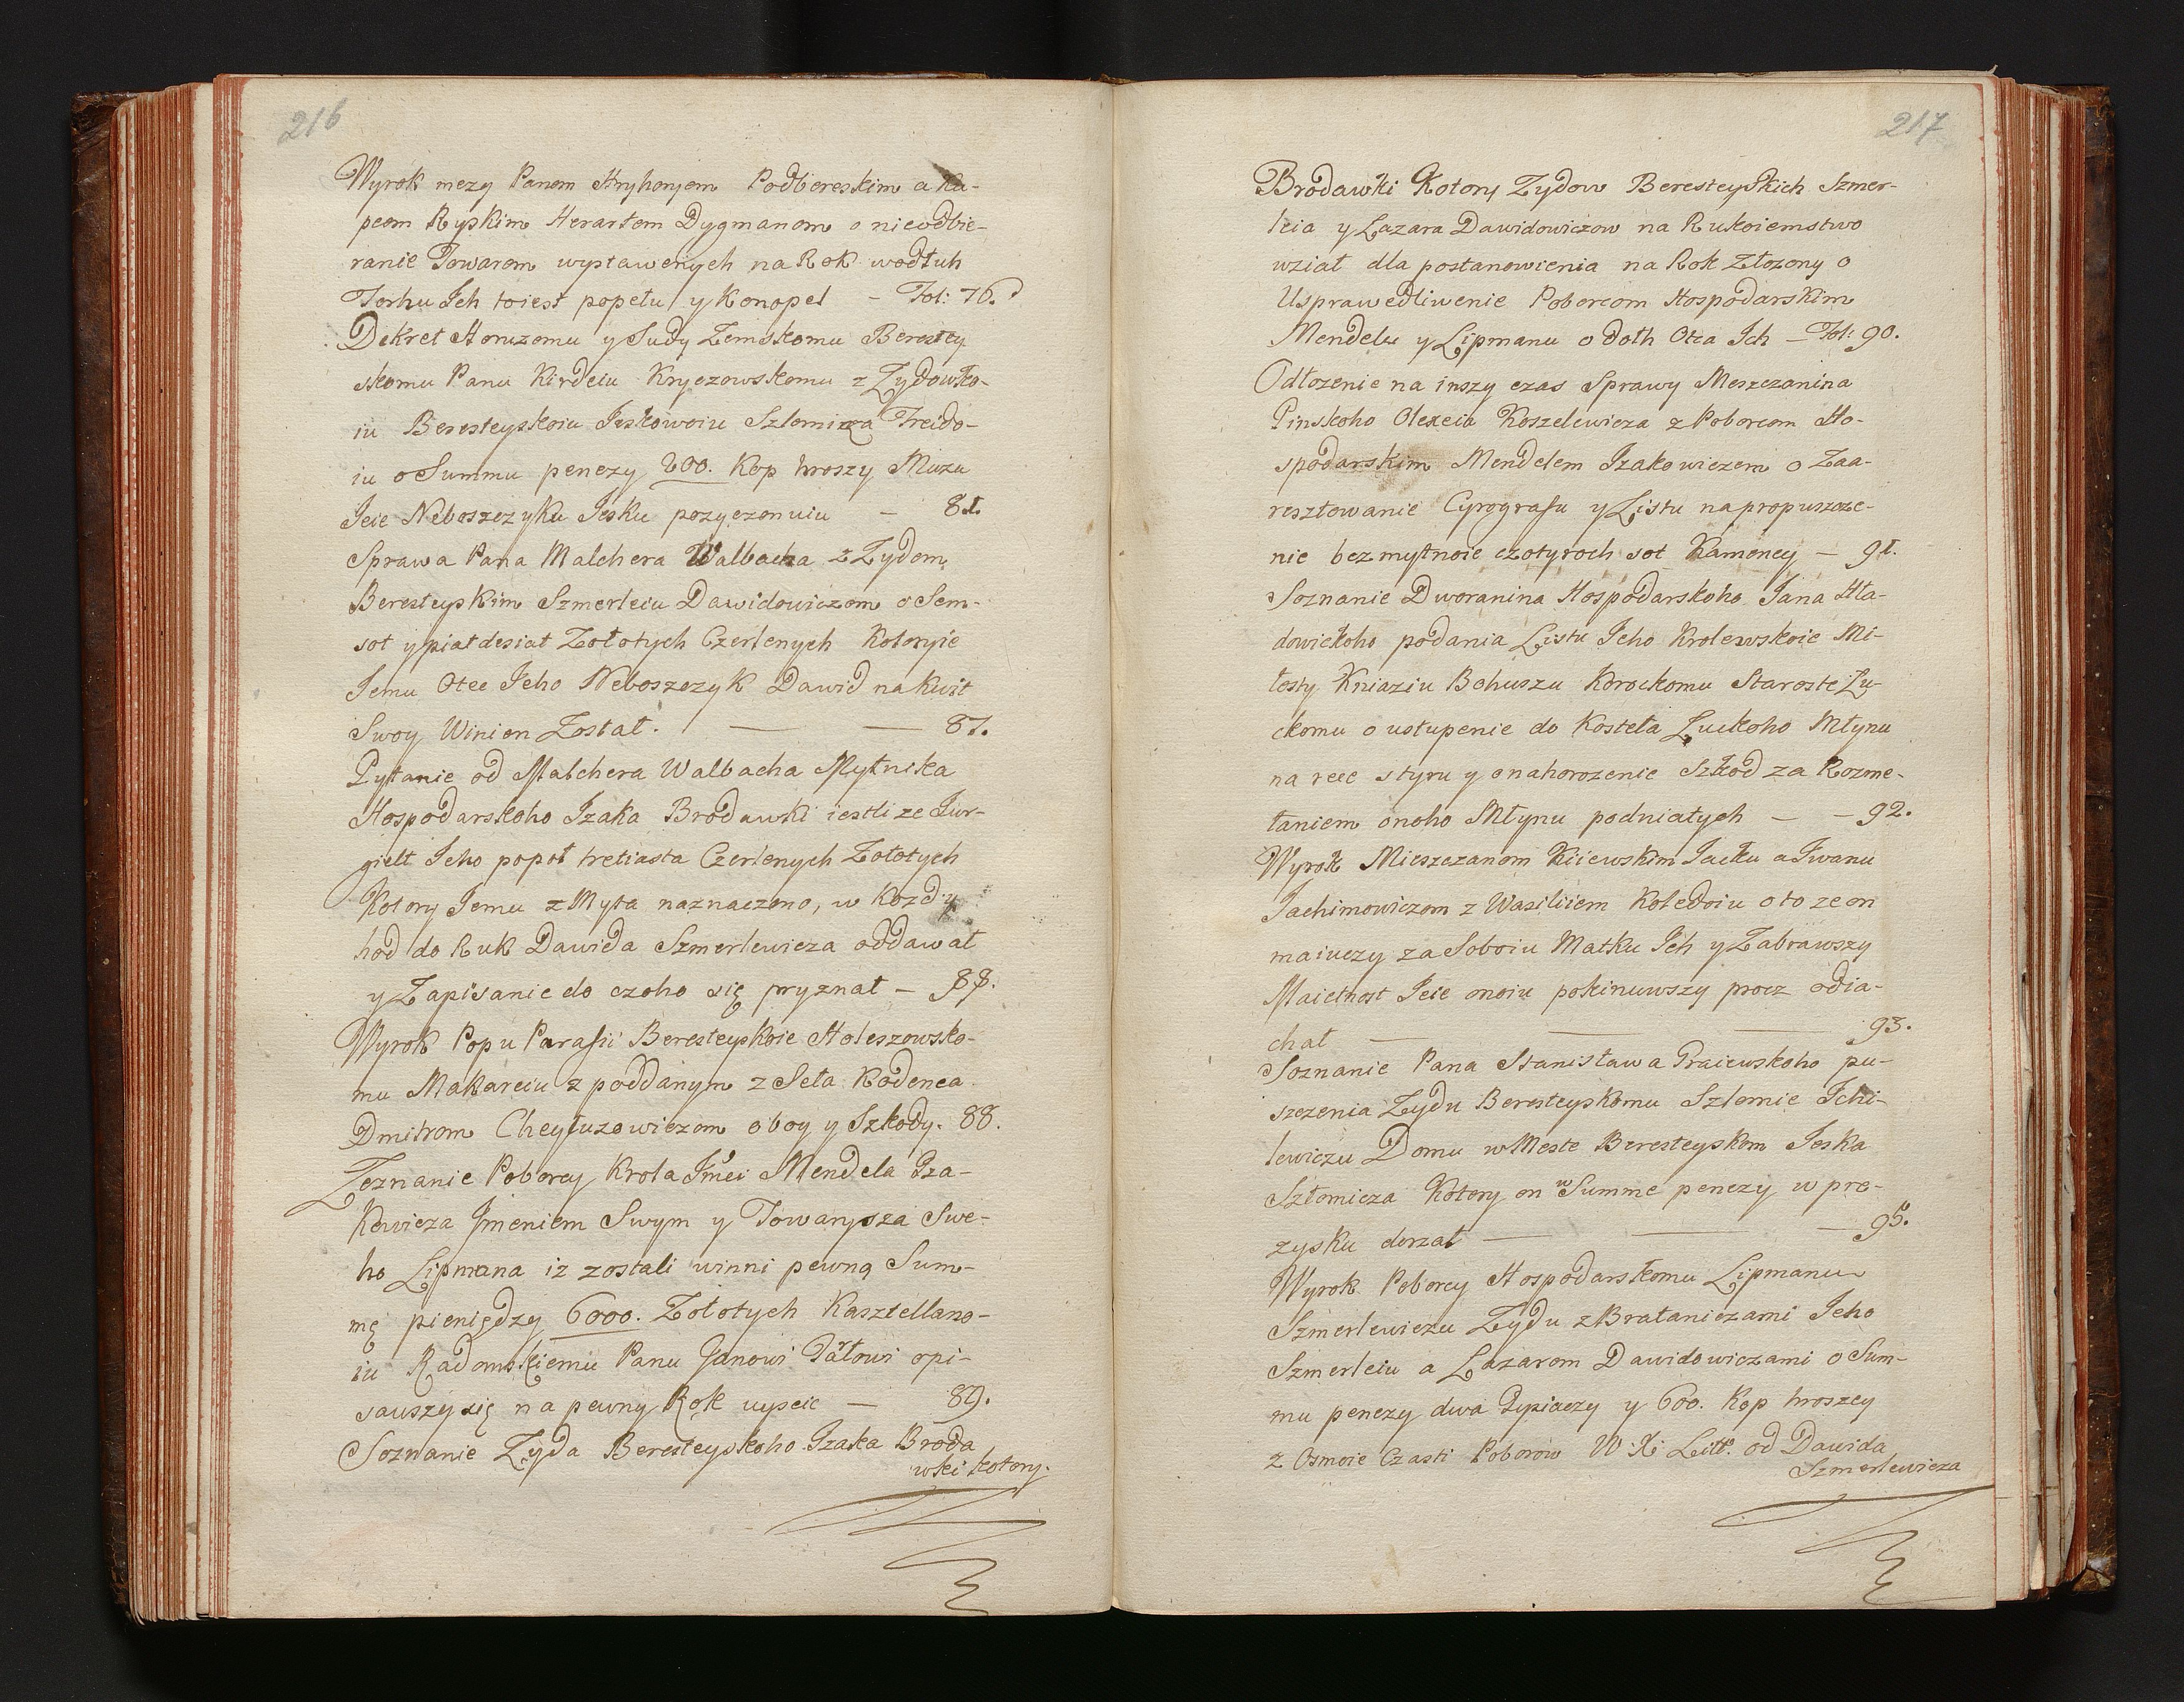 216
Wyrok mezy Panem Hryhoryem Podbereskim a Ku-
pcom Ryskim Herartem Dygmanom o nieodbie-
ranie Towarom wystawenych na Rok wodłuh
Torhu Ich toiest popełu y Konopel - Fol: 76.
Dekret Horuzomu y Sudy Zemskomu Berestey
skomu Panu Kirdeiu Kryczowskomu z Zydowko-
iu Beresteyskoiu Jeskowoiu Szlomicza Freido-
iu o Summu penezy 200. Kop hroszy Muzu
Jeie Neboszczyku Jesku pozyczonuiu - 81.
Sprawa Pana Malchera Walbacha z Zydom
Beresteyskim Szmerleiu Dawidowiczom o Sem-
sot y piatdesiat Zołotych Czerlenych Kotoryie
Jemu Otec Jeho Neboszczyk Dawid na Kwit
Swoy Winien Został. — — 87.
Pytanie od Malchera Walbacha Mytnika
Hospodarskoho Izaka Brodawki iestli ze Jur-
gielt Jeho popoł tretiasta Czerlenych Zołotych
Kotory Jemu z Myta naznaczono, w Kozdy
hod do Ruk Dawida Szmerlewicza oddawał
y Zapisanie do czoho się pryznał - 88.
Wyrok Popu Parafii Beresteyskoie Holeszowsko-
mu Makareiu z poddanym z Seła Kodenca
Dmitrom Cheyłuzowiczom o boy y Szkody. 88.
Zeznanie Poborcy Krola Jmci Mendela Iza-
kowicza Jmeniem Swym y Towarysza Swe-
ho Lipmana iz zostali winni pewną Sum-
mę pieniędzy 6000. Zołotych Kasztellano-
iu Radomskiemu Panu Janowi opi-
sauszy się na pewny Rok upscic — 89.
Soznanie Zyda Beresteyskoho Izaka Broda
wki kotory.
217
Brodawki Kotory Zydow Beresteyskich Szmer-
leia y Lazara Dawidowiczow na Rukoiemstwo
wział dla postanowienia na Rok Złozony o
Usprawedliwenie Poborcom Hospodarskim
Mendelu y Lipmanu o dołh Otca Ich - Fol: 90.
Odłozenie na inszy czas Sprawy Meszczanina
Pinskoho Olexeia Koszelewicza z Poborcom Ho-
spodarskim Mendelem Izakowiczem o Zaa-
resztowanie Cyrografu y Listu na propuszcze-
nie bezmytnoie czotyroch sot Kamency - 91.
Soznanie Dworanina Hospodarskoho Jana Hła-
dowickoho podania Listu Jeho Krolewskoie Mi-
łosty Kniaziu Bohuszu Korockomu Staroste Łu-
ckomu o ustupenie do Kosteła Łuckoho Młynu
na rece styru y o nahorozenie Szkod za Rozme-
taniem onoho Młynu podniatych - - 92.
Wyrok Mieszczanom Kiiewskim Jacku a Iwanu
Jachimowiczom z Wasiliiem Koledoiu o to ze on
maiuczy za Soboiu Matku Ich y Zabrawszy
Maietnost Jeie onoiu pokinuwszy procz odia-
chał — — — 93.
Soznanie Pana Stanisława Praiewskoho pu-
szczenia Zydu Beresteyskomu Szlomie Ichi-
lewiczu Domu w Meste Beresteyskom Jeska
Szłomicza Kotory on w Summe penezy w pre-
zysku derzał — — — 95.
Wyrok Poborcy Hospodarskomu Lipmanu
Szmerlewiczu Zydu z Brataniczami Jeho
Szmerleiu a Lazarom Dawidowiczami o Sum-
mu penezy dwa Tysiaczy y 600. Kop hroszey
z Osmoie Czasti Poborow W: X: Litt. od Dawida
Szmerlewicza